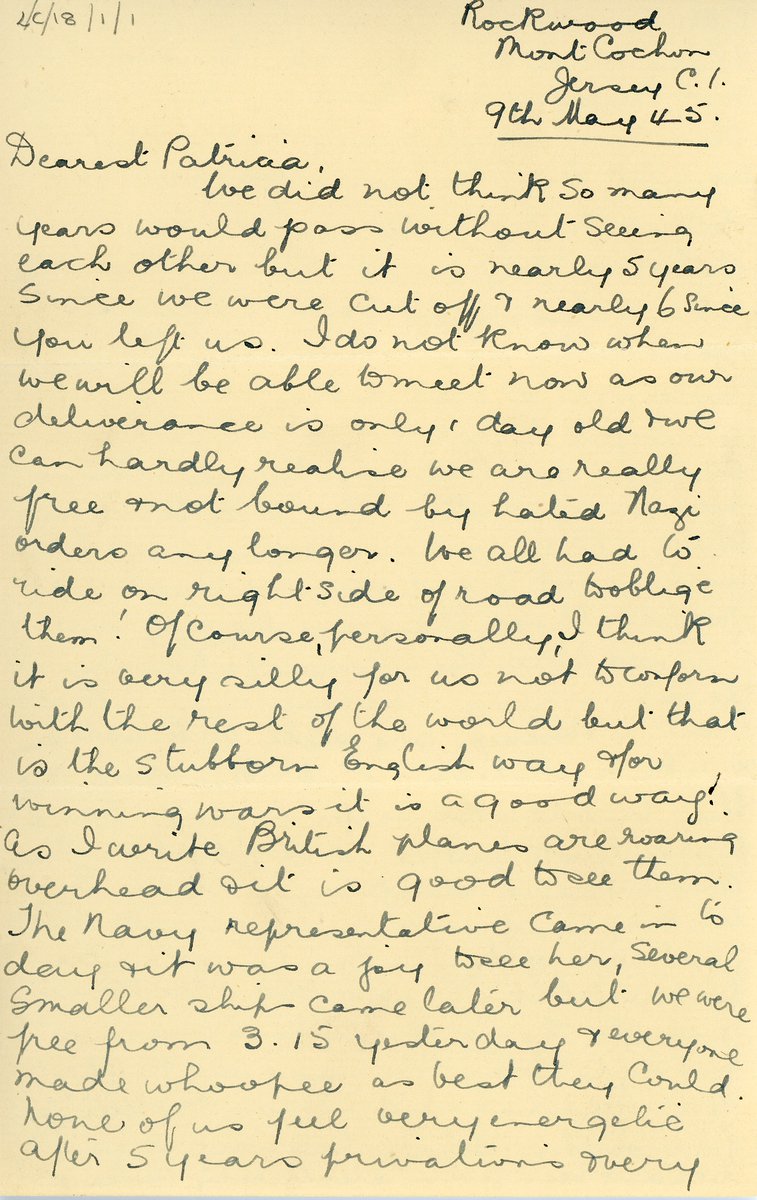 L/C/18/1/1
Rockwood
Mont Cochon
Jersey C.I.
9th May 45.
Dearest Patricia,
We did not think so many
years would pass without seeing
each other but it is nearly 5 years
since we were cut off & nearly 6 since
you left us. I do not know when
we will be able to meet now as our
deliverance is only 1 day old & we
can hardly realise we are really
free & not bound by hated Nazi
orders any longer. We all had to
ride on right side of road to oblige
them! Of course, personally, I think
it is very silly for us not to conform
with the rest of the world but that
is the stubborn English way & for
winning wars it is a good way!
As I write British planes are roaring
overhead & it is good to see them.
The Navy representative came in to
day & it was a joy to see her, several
smaller ships came later but we were
free from 3.15 yesterday & everyone
made whoopee as best they could.
None of us feel very energetic
after 5 years privations & very